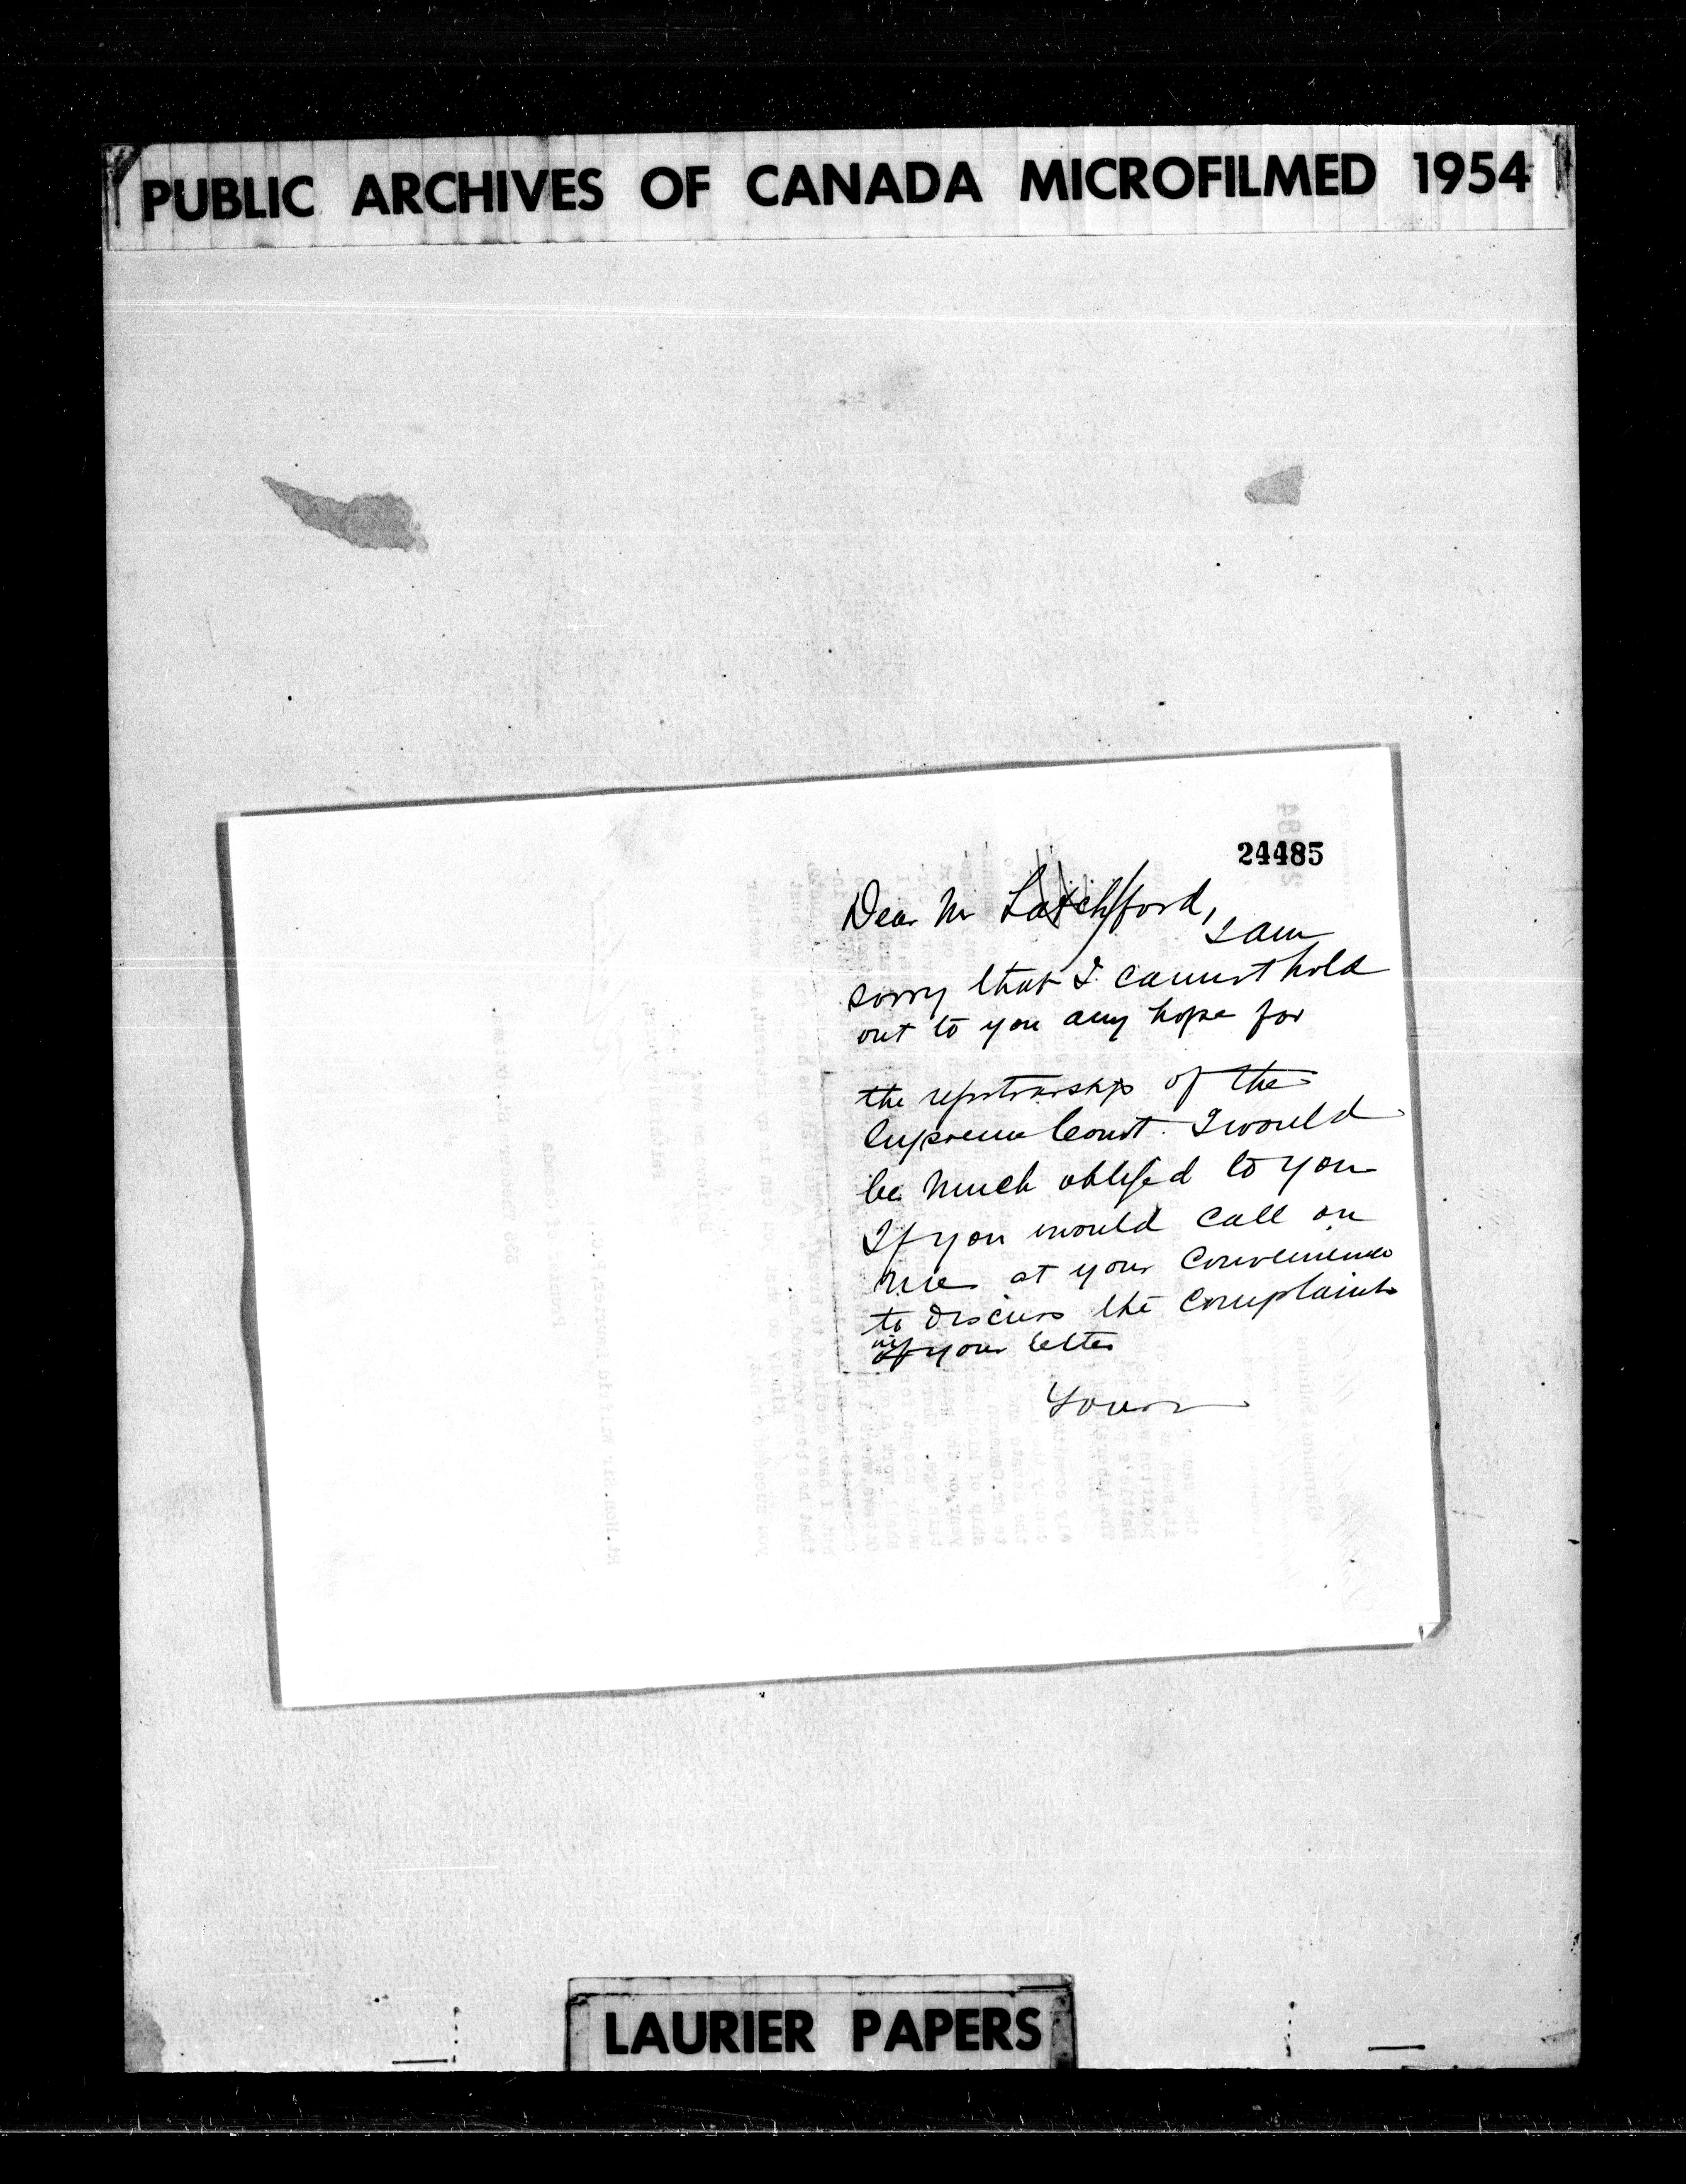 PUBLIC ARCHIVES OF CANADA MICROFILMED 1954
24485
Dear Mr Latchford,
I am
sorry that I cannot hold
out to you any hope for
the reportership of the
Supreme Court. I would
be much obliged to you
If you would call on
me at your convenience
to discuss the complaints
of your letter
Yours
LAURIER PAPERS